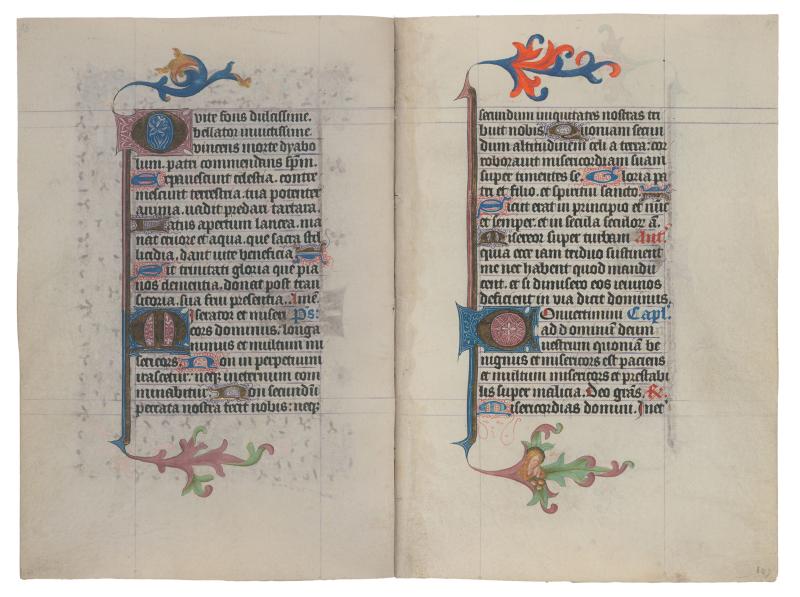 uite fons dulcissime.
bellator invictissime.
vincens morte dyabo
lum. patri commendans spm.
Expavescunt celestia. contre
mescunt terrestria. tua potenter
anima. vicit predari tartara.
Latus apertum lancea. ma
nat cruore et aqua. que sacra stil
licidia. dant vite beneficia.
Sit trinitati gloria que pia
nos clementia. donet post tran
sitoria. sua frui presentia. Amen.
Miserator et miseri Ps:
cors dominus: longa
nimus et multum mi
sericors. Non in perpetuum
irascetur: neq; ineternum com
minabitur. Non secundum
peccata nostra fecit nobis: neq;
secundum iniquitates nostras tri
buit nobis. Quoniam secun
dum altitudinem celi a terra: cor
roboravit misericordiam suam
super timentes se. Gloria pa
tri et filio. et spiritui sancto.
Sicut erat in principio et nunc
et semper. et in secula seculorum a.
Misereor super turbam Ant.
quia ecce iam triduo sustinent
me nec habent quod mandu
cent. et si dimisero eos ieiunos
deficient in via dicit dominus.
Convertimini Capl.
ad dominum deum
vestrum quoniam be
nignus et misericors est paciens
et multum misericors et prestabi
lis super malicia. Deo gras.
Misericordias domini. Ineter